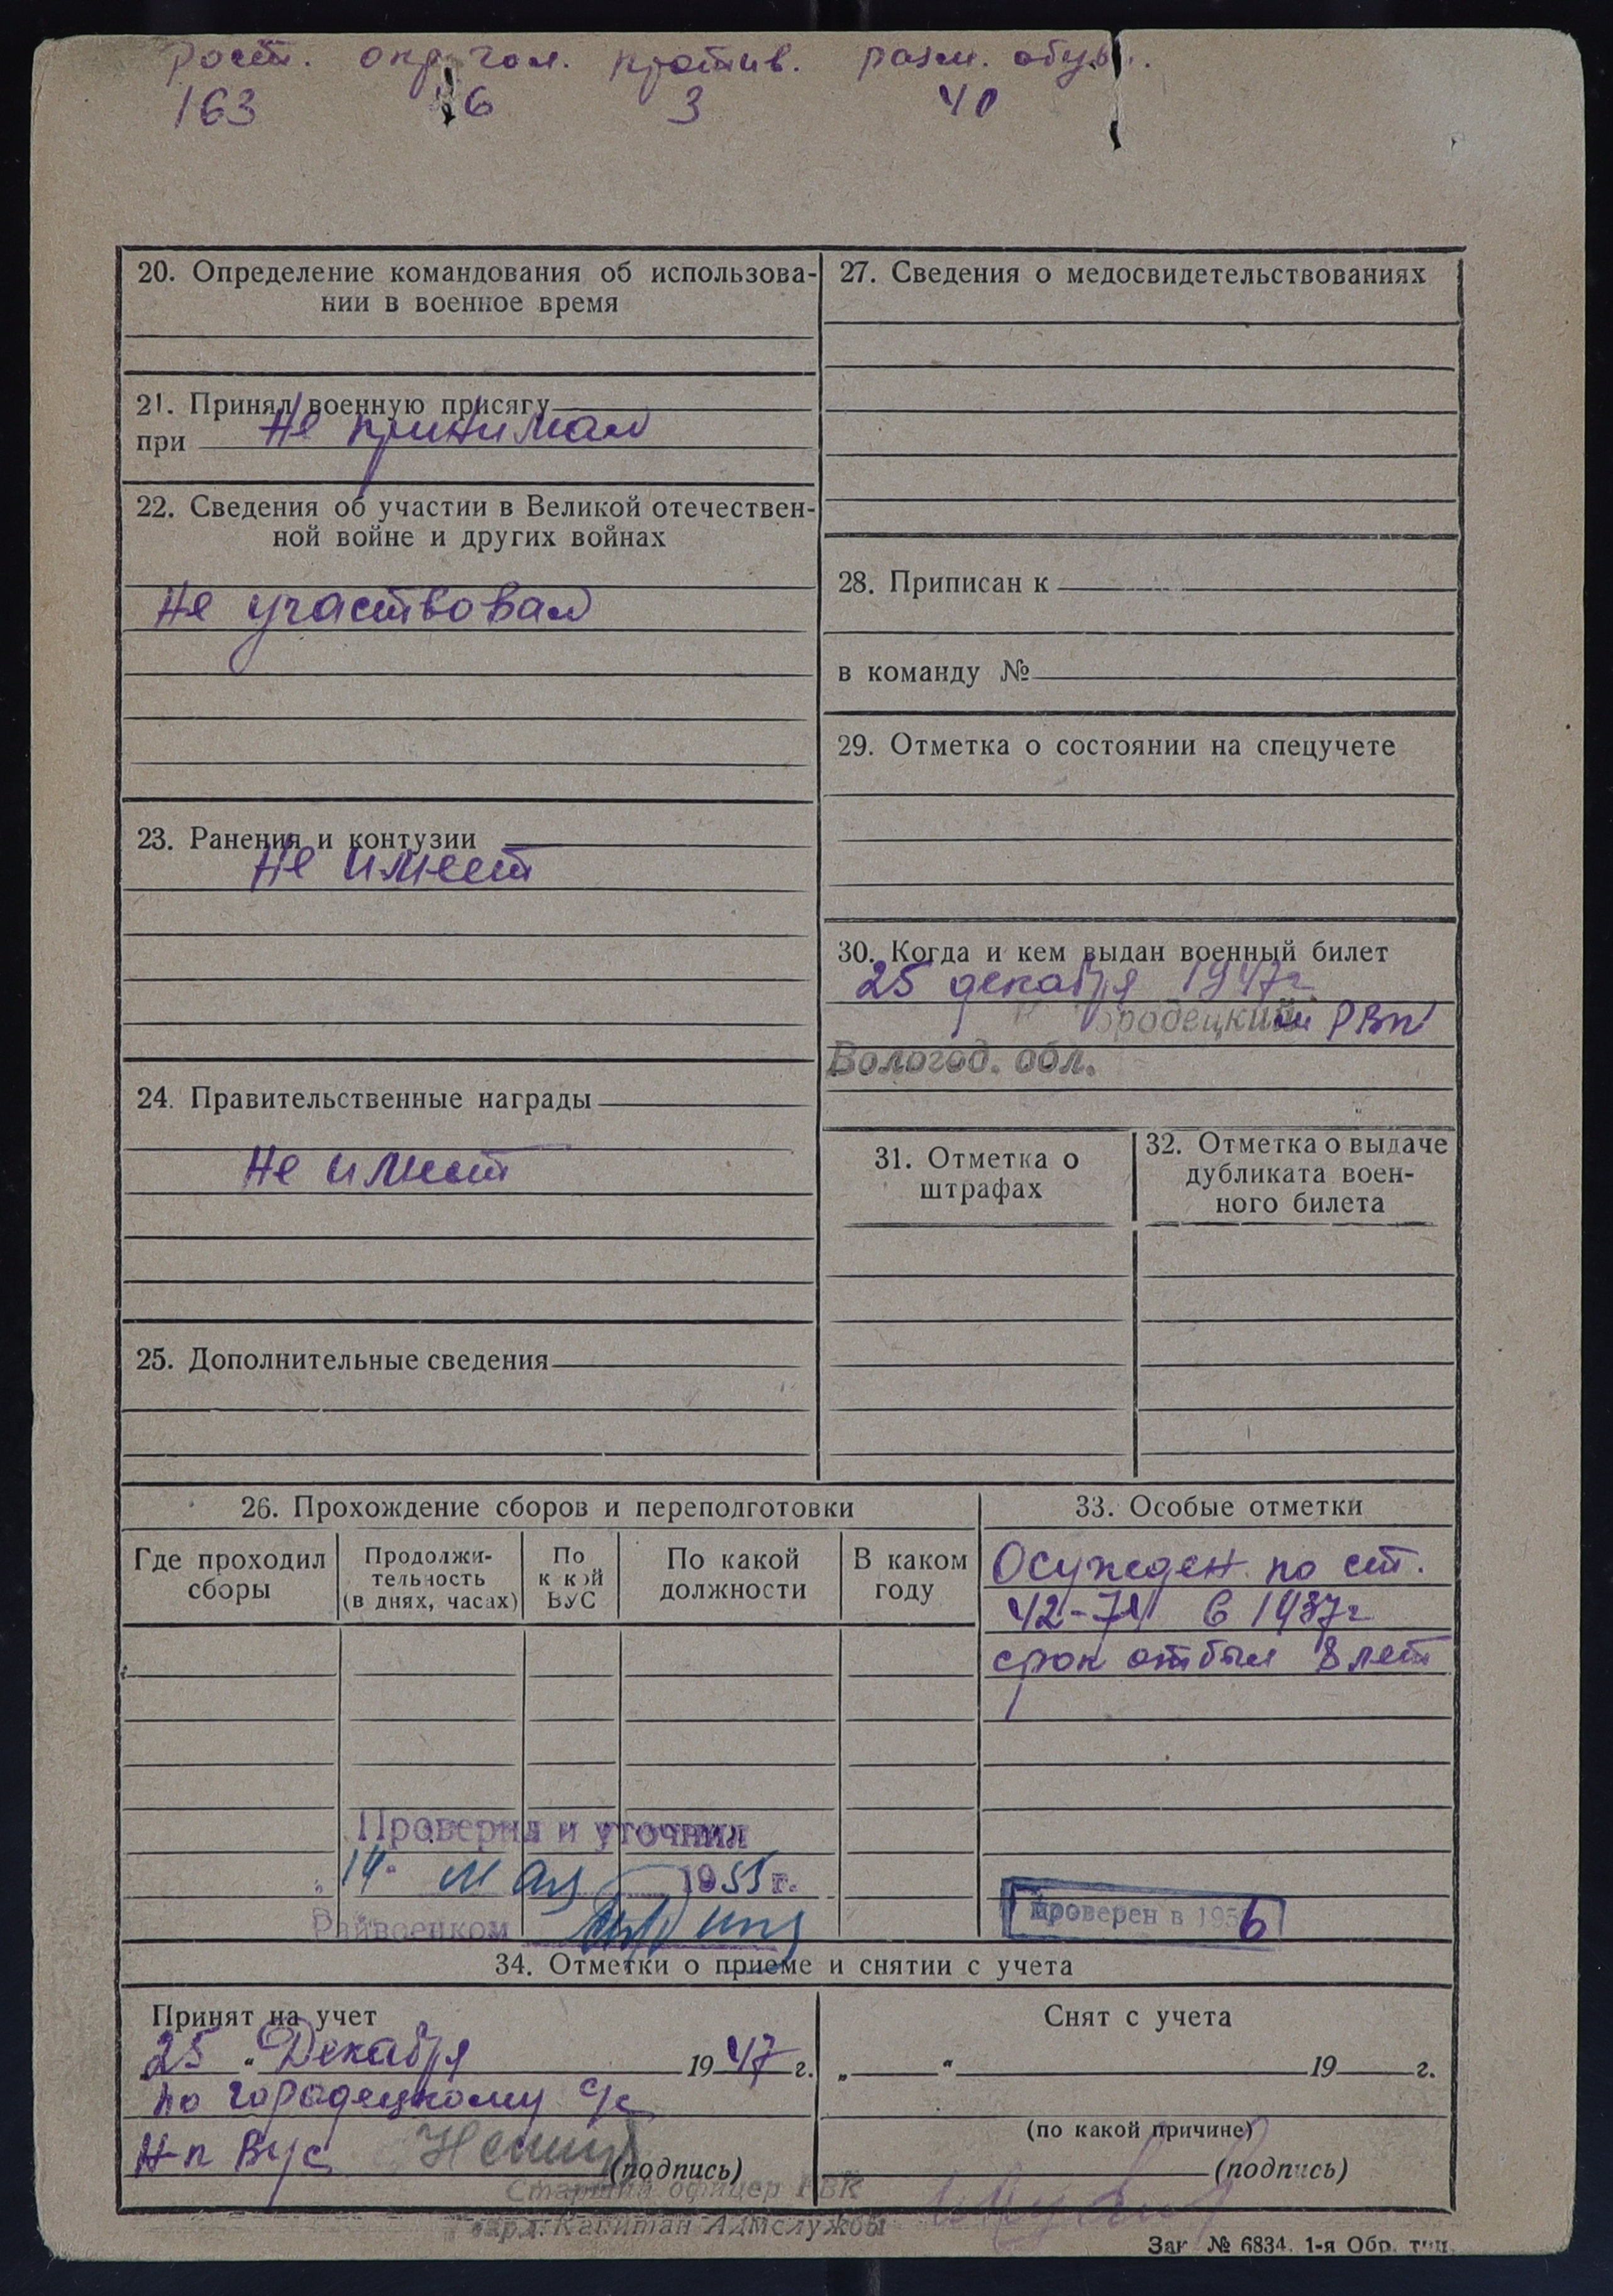 рост. окр. гол. против. разм. обув.
163 6 3 40
20. Определение командования об использова-
нии в военное время
21. Принял военную присягу
при Не принимал
22. Сведения об участии в Великой отечествен-
ной войне и других войнах
Не участвовал
23. Ранения и контузии
Не имеет
24. Правительственные награды
Не имеет
25. Дополнительные сведения
27. Сведения о медосвидетельствованиях
28. Приписан к
в команду №
29. Отметка о состоянии на спецучете
30. Когда и кем выдан военный билет
25 декабря 1947г.
Городецким РВК
Вологод. обл.
31. Отметка о
штрафах
32. Отметка о выдаче
дубликата воен-
ного билета
26. Прохождение сборов и переподготовки
Где проходил
сборы
Продолжи-
тельность
(в днях, часах)
По
какой
ВУС
По какой
должности
В каком
году
33. Особые отметки
Осужден по ст.
в 1937г
срок отбыл 8 лет
Проверил и уточнил
14 мая 1955 г.
Райвоенком
Проверен в 1956
34. Отметки о приеме и снятии с учета
Принят на учет
25 " Декабря 1947 г.
по городецкому с/с
Н-к Вус
(подпись)
Снят с учета
„ “ 19 г.
(по какой причине)
(подпись)
Старший офицер РВК
Капитан Адмслужбы
Зак. № 6834. 1-я Обр. тип.